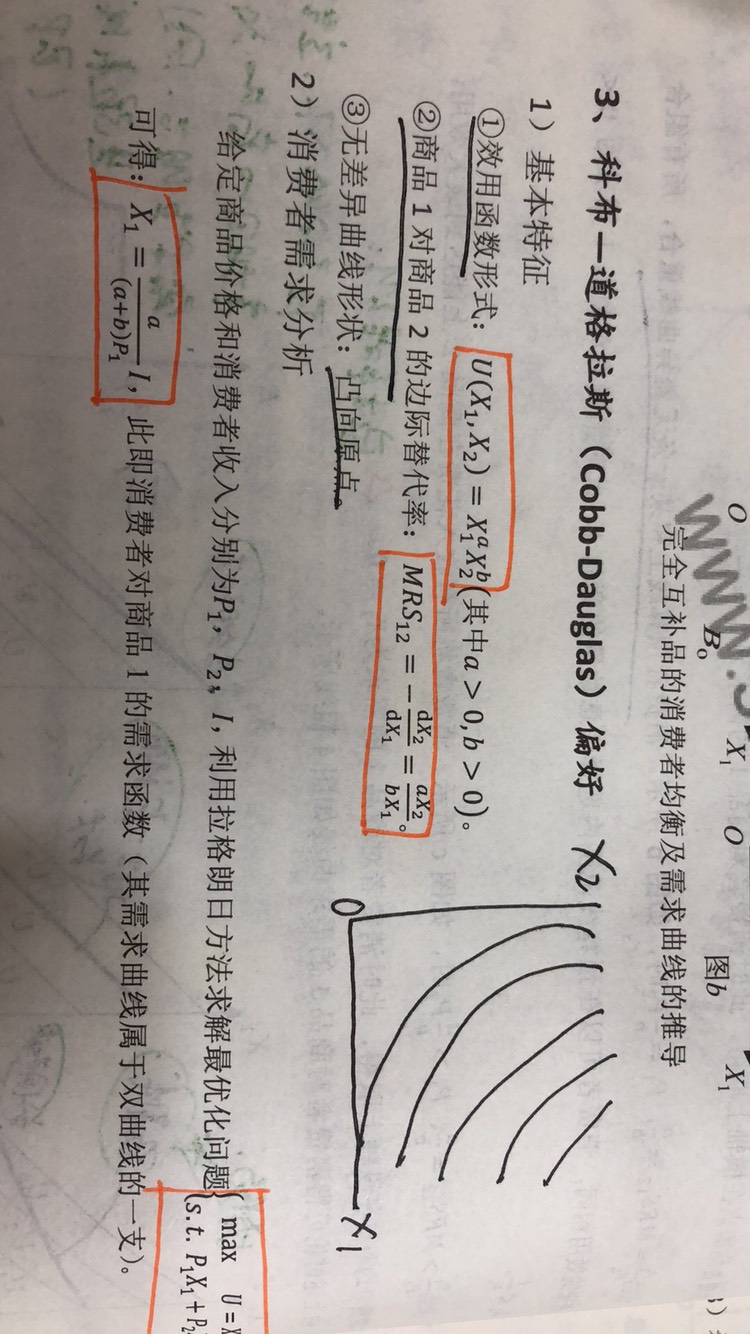 O B₀ X₁ O 图b X₁
www.
完全互补品的消费者均衡及需求曲线的推导
3、科布—道格拉斯（Cobb-Dauglas）偏好
X₂
1）基本特征
①效用函数形式：U(X₁, X₂) = X₁ᵃX₂ᵇ(其中a > 0, b > 0)。
②商品 1 对商品 2 的边际替代率：MRS₁₂ = −dX₂/dX₁ = aX₂/bX₁。
③无差异曲线形状：凸向原点。
O X₁
2）消费者需求分析
给定商品价格和消费者收入分别为P₁，P₂，I，利用拉格朗日方法求解最优化问题{max U = X
s.t. P₁X₁ + P₂
可得：X₁ = a/(a+b)P₁ I，此即消费者对商品 1 的需求函数（其需求曲线属于双曲线的一支）。